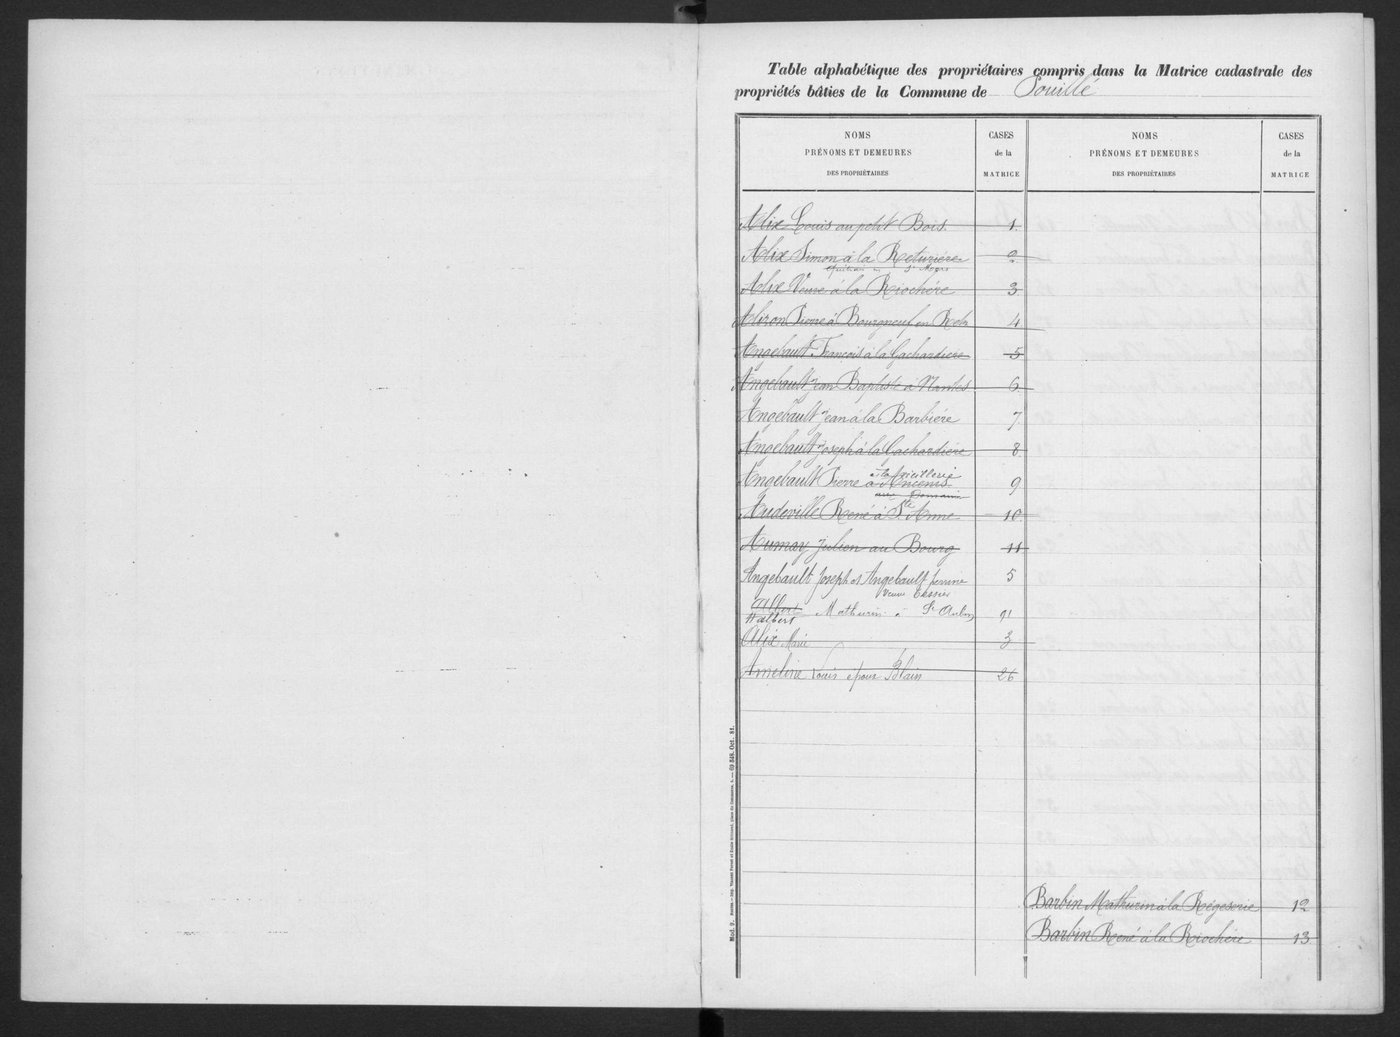 Table alphabétique des propriétaires compris dans la Matrice cadastrale des
propriétés bâties de la Commune de Pouillé
NOMS
PRÉNOMS ET DEMEURES
DES PROPRIÉTAIRES
CASES
de la
MATRICE
NOMS
PRÉNOMS ET DEMEURES
DES PROPRIÉTAIRES
CASES
de la
MATRICE
Alix Louis au petit Bois 1
Alix Simon à la Returière 2
Alix Veuve à la Riochère 3
Aliron Pierre à Bourgneuf en Retz 4
Angebault François à la Gachardière 5
Angebault Jean Baptiste à Nantes 6
Angebault Jean à la Barbière 7
Angebault Joseph à la Gachardière 8
Angebault Pierre à Ancenis 9
Audeville René à Ste Anne 10
Aumay Julien au Bourg 11
Angebault Joseph et Angebault perrine 5
veuve Tessier
Albert
Halbert Mathurin à St Aubin 91
Alix Marie 3
Ameline Louis époux Blain 26
Barbin Mathurin à la Régeserie 12
Barbin René à la Riochère 13